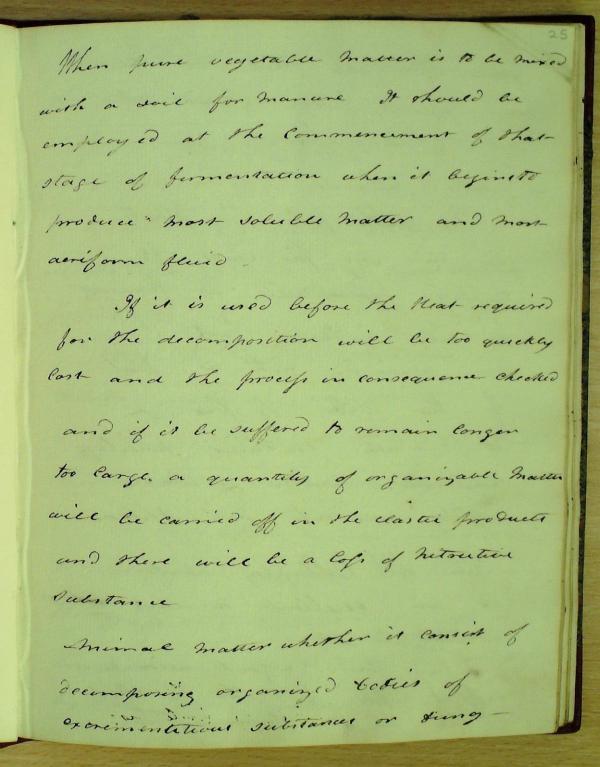 25
When pure vegetable matter is to be mixed
with a soil for manure It should be
employed at the commencement of that
stage of fermentation when it begins to
produce most soluble matter and most
aeriform fluid
If it is used before the Heat required
for the decomposition will be too quickly
lost and the process in consequence checked
and if it be suffered to remain longer
too large a quantity of organizable matter
will be carried off in the elastic products
and there will be a loss of nutritive
substance
Animal matter whether it consist of
decomposing organized bodies of
excrementitious substances or dung